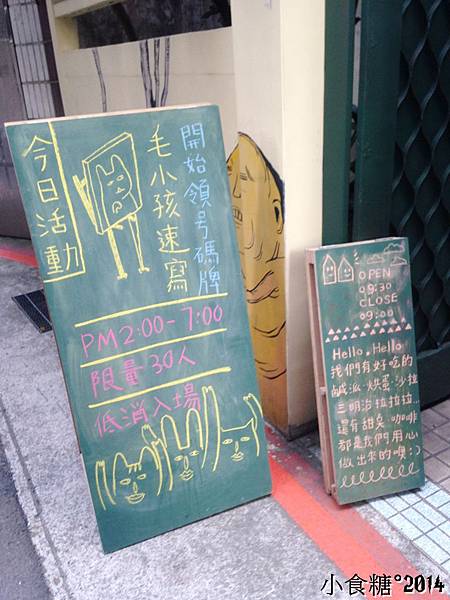 今日活動
毛小孩速寫
開始領号碼牌
PM2:00-7:00
限量30人
低消入場
OPEN
09:30
CLOSE
09:00
Hello, Hello
我們有好吃的
鹹派·烘蛋·沙拉
三明治拉拉拉
還有甜奐·咖啡
都是我們用心
做出來的噢:)
小食糖°2014